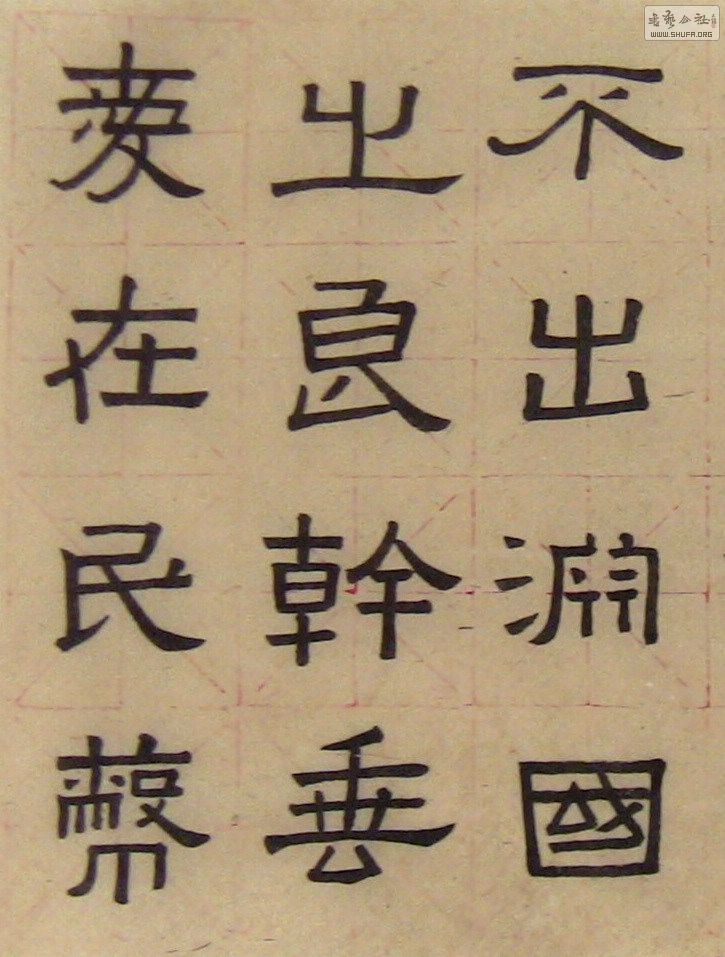 不出淵國
之良幹垂
愛在民蔽
書藝公社
WWW.SHUFA.ORG